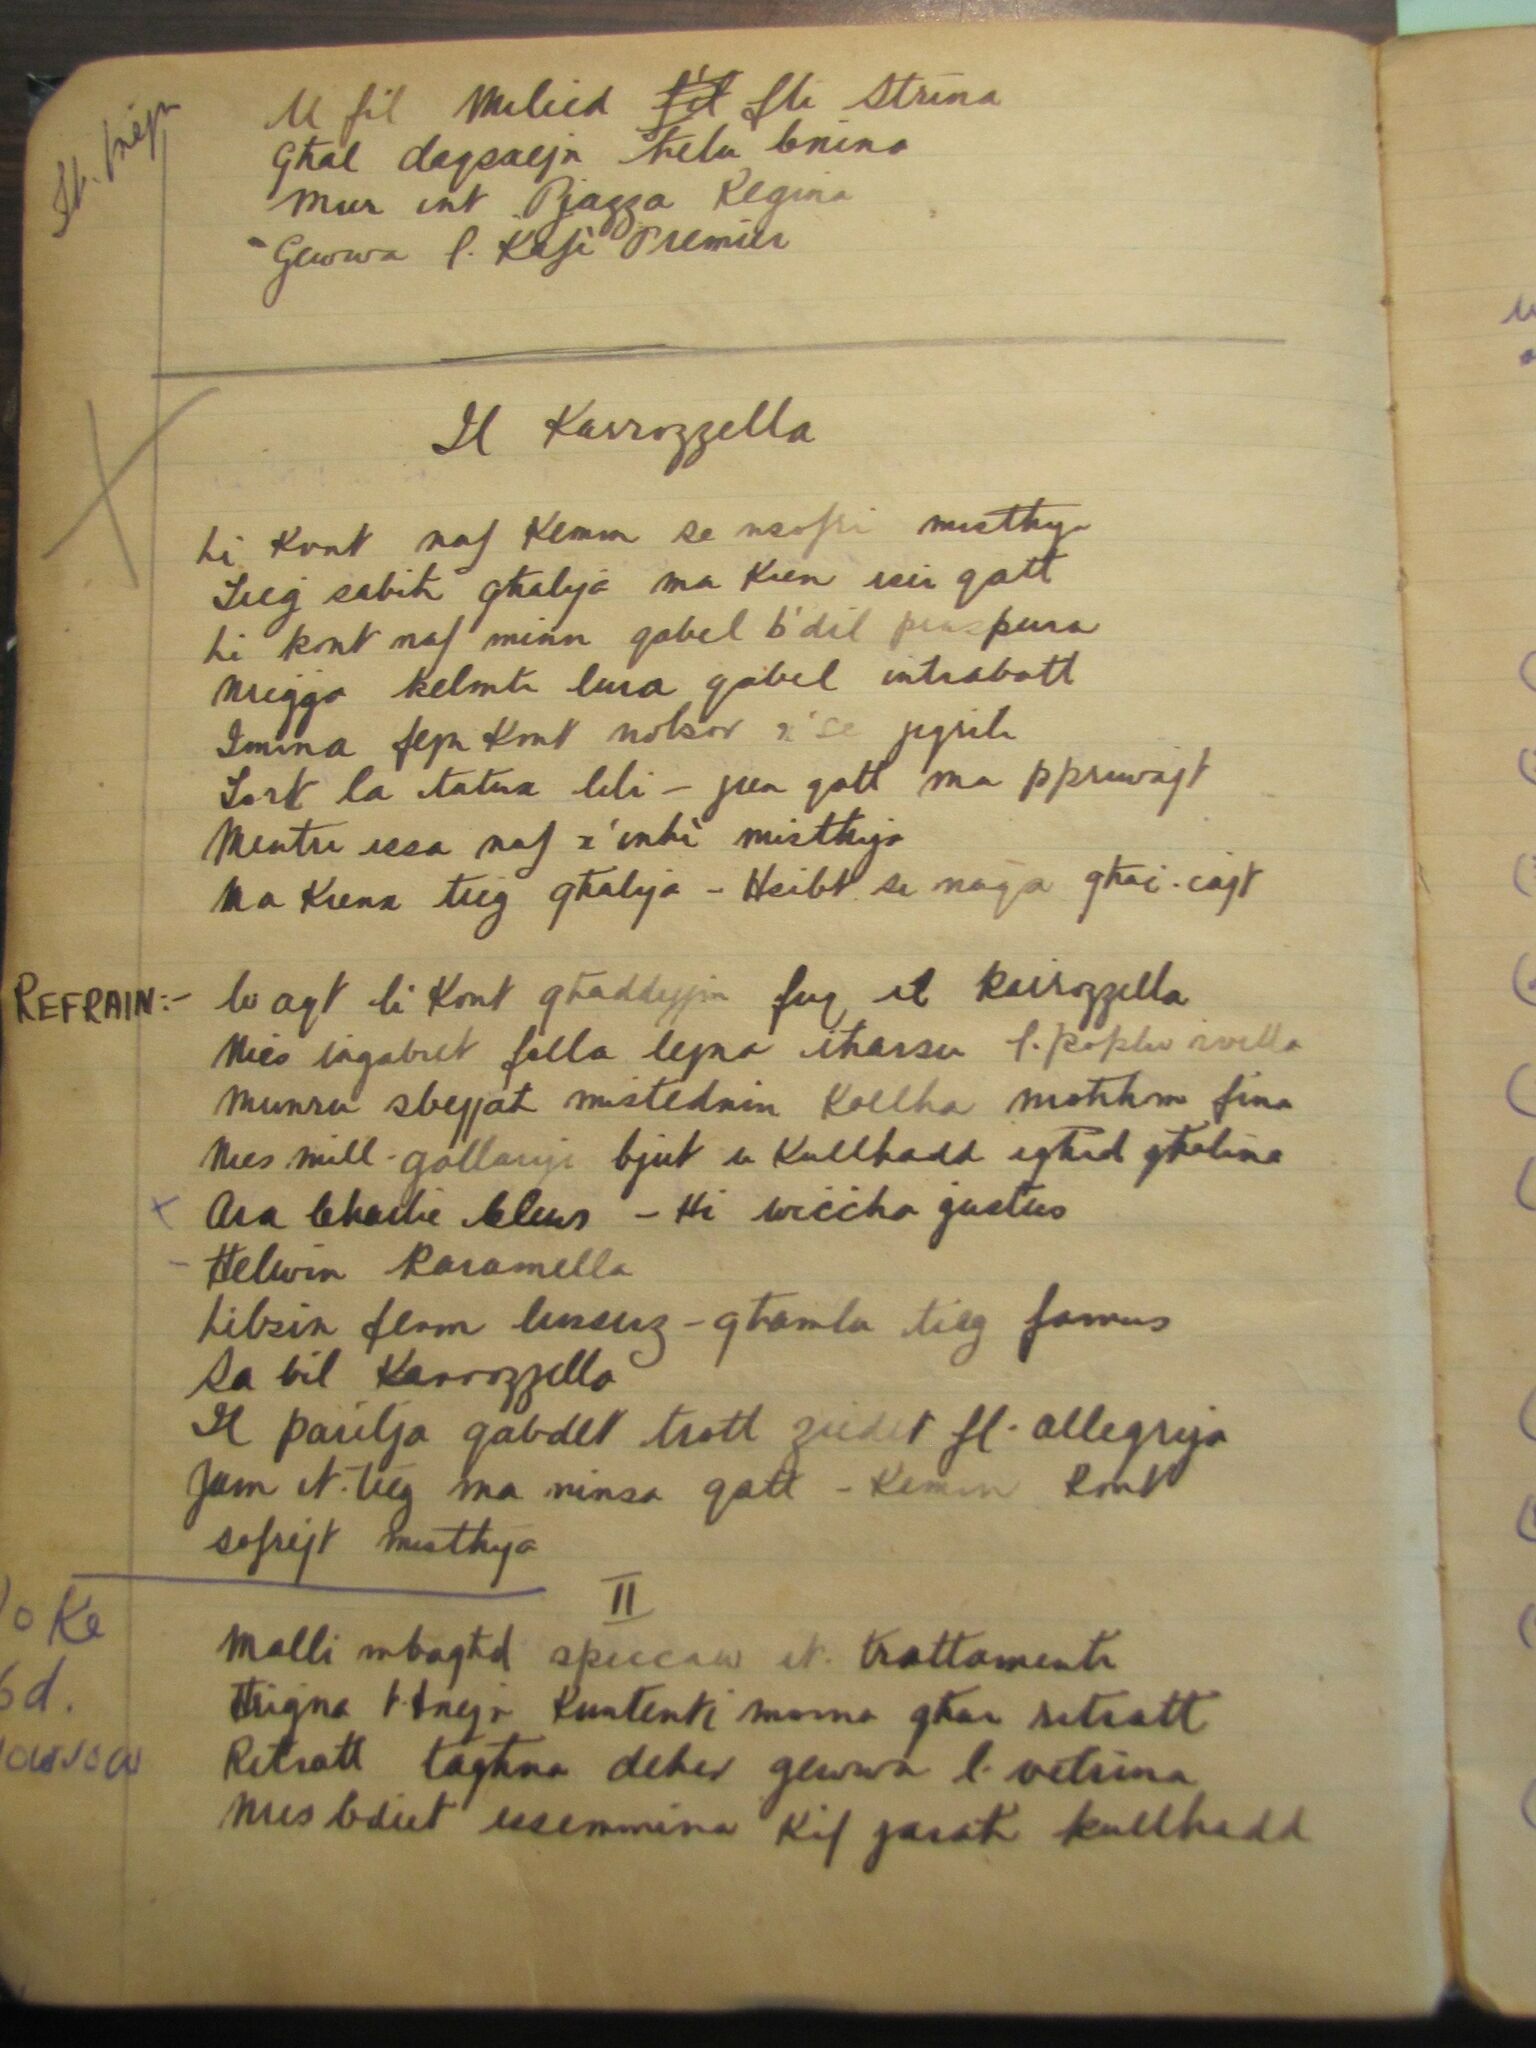 U fil Milied fil fli Strina
Għal daqsxejn ħelu bnina
Mur int Pjazza Regina
Gewwa l. Kafe Premier
Il Karrozzella
Li Kont naf Kemm se nsofri misthija
Tieg sabih għalija ma Kien isir qatt
Li kont naf minn qabel b'dil
Nreġġa kelmti lura qabel intrabatt
Imma fejn Kont nobsor x'se jigrili
Tort la tatux lili - jien qatt ma ppruvajt
Mentri issa naf x'inhi misthija
Ma Kienx tieg għalija - Hsibt se naqa għaċ-ċajt
REFRAIN:- W aqt li Kont għaddejjin fuq il karrozzella
Nies ingabret folla lejna iħarsu l-
Munru sbejjaħ mistednin Kollha
Nies mill-gallariji bjut u Kullħadd igħid għalina
Ara Charlie - Hi wiċċha ġustus
Helwin Karamella
Libsin ferm lussuz - għamlu tieg famus
Sa bil Karrozzella
Il parilja qabdet trott ziedet fl-allegrija
Jum it-tieg ma ninsa qatt - Kemm Kont
sofrejt misthija
II
Malli mbagħd spiccaw it-trattamenti
Ħrigna t-tnejn Kuntenti morna għar ritratt
Ritratt tagħna deher gewwa l-vetrina
Nies bdiet issemmina Kif jarah kullħadd
Joke
6d.